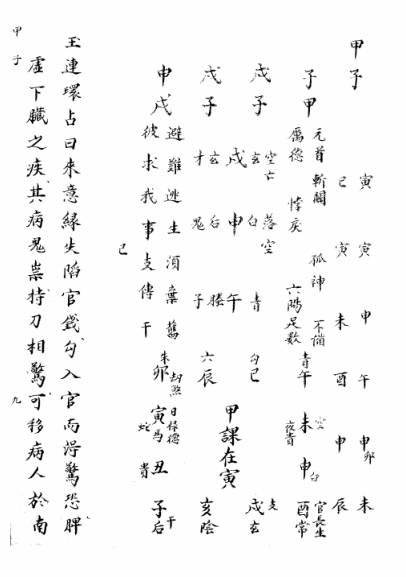 甲子
寅 寅 申 午 申卯 未
己 寅 未 酉 申 辰
子甲
元首 斬關 孤神 不備
厲德 悖戾 六陽足數
青午 空未 夜貴 申白 酉常 官長生
戌子
空亡 落空
玄 白 青
戌 申 午
勾巳
支 戌玄
甲課在寅
戌子
玄 后 螣
才 鬼 子
六辰
亥陰
申戌
避難逃生須棄舊
彼求我事支傳干
朱卯 劫煞
蛇 寅馬 日祿德
貴 丑
子后 干
己
玉連環占曰來意緣失陷官錢勾入官而得驚恐脾
虛下臟之疾其病鬼祟持刀相驚可移病人於南
甲子
九